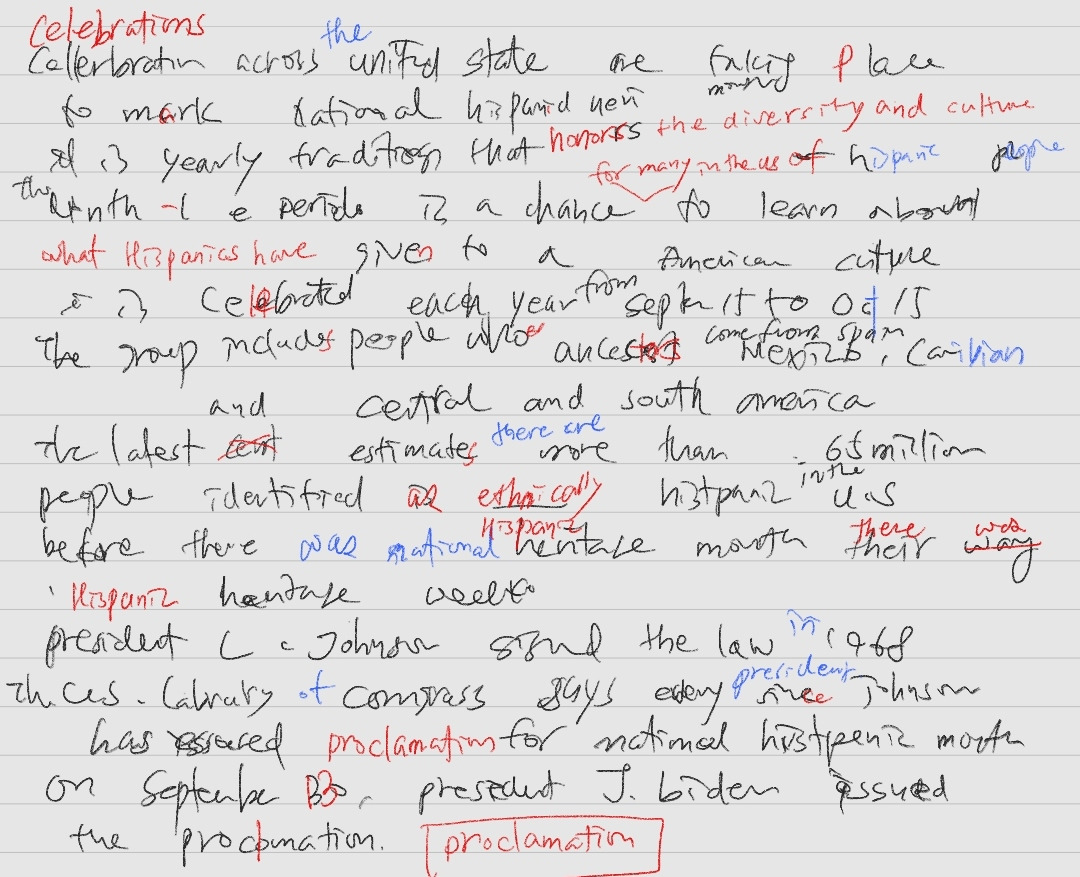 Celebrations
the
Cellerbratin across united state are taking place
to mark national hispanid
it is yearly tradition that honors the diversity and culture
for many in the us of hispanic people
the month -l e periods is a chance to learn about
what Hispanics have given to a American culture
it is Celebrated each year from septer 15 to Oct 15
come from spain
The group includes people who ancestors Mexico, Caribian
and central and south america
there are
the latest cent estimates more than 65 million
in the
people identified as ethnically histpanic U.S
Hispanic there was
before there was national heritage month their way
Hispanic heritage week
in
president L . Johnson signd the law 1968
president
The U.S. Labrary of Comgrass says every since Johnson
has issued proclamation for national histpenic month
on September 30, president J. biden issued
the proclamation. proclamation